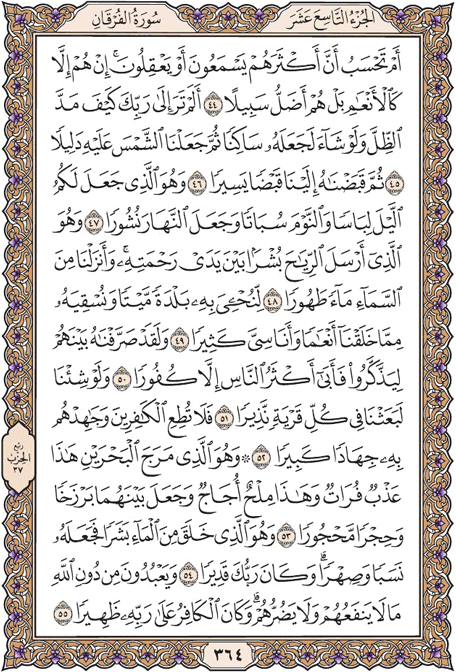 الجزء التاسع عشر
سورة الفرقان
أَمْ تَحْسَبُ أَنَّ أَكْثَرَهُمْ يَسْمَعُونَ أَوْ يَعْقِلُونَۚ إِنْ هُمْ إِلَّا
كَالْأَنْعَٰمِ بَلْ هُمْ أَضَلُّ سَبِيلًا ٤٤ أَلَمْ تَرَ إِلَىٰ رَبِّكَ كَيْفَ مَدَّ
الظِّلَّ وَلَوْ شَآءَ لَجَعَلَهُۥ سَاكِنًا ثُمَّ جَعَلْنَا الشَّمْسَ عَلَيْهِ دَلِيلًا
٤٥ ثُمَّ قَبَضْنَٰهُ إِلَيْنَا قَبْضًا يَسِيرًا ٤٦ وَهُوَ الَّذِى جَعَلَ لَكُمُ
الَّيْلَ لِبَاسًا وَالنَّوْمَ سُبَاتًا وَجَعَلَ النَّهَارَ نُشُورًا ٤٧ وَهُوَ
الَّذِىٓ أَرْسَلَ الرِّيَٰحَ بُشْرًۢا بَيْنَ يَدَىْ رَحْمَتِهِۦۚ وَأَنزَلْنَا مِنَ
السَّمَآءِ مَآءً طَهُورًا ٤٨ لِّنُحْۦِىَ بِهِۦ بَلْدَةً مَّيْتًا وَنُسْقِيَهُۥ
مِمَّا خَلَقْنَآ أَنْعَٰمًا وَأَنَاسِىَّ كَثِيرًا ٤٩ وَلَقَدْ صَرَّفْنَٰهُ بَيْنَهُمْ
لِيَذَّكَّرُوا۟ فَأَبَىٰٓ أَكْثَرُ النَّاسِ إِلَّا كُفُورًا ٥٠ وَلَوْ شِئْنَا
لَبَعَثْنَا فِى كُلِّ قَرْيَةٍ نَّذِيرًا ٥١ فَلَا تُطِعِ الْكَٰفِرِينَ وَجَٰهِدْهُم
بِهِۦ جِهَادًا كَبِيرًا ٥٢ ۞ وَهُوَ الَّذِى مَرَجَ الْبَحْرَيْنِ هَٰذَا
عَذْبٌ فُرَاتٌ وَهَٰذَا مِلْحٌ أُجَاجٌ وَجَعَلَ بَيْنَهُمَا بَرْزَخًا
وَحِجْرًا مَّحْجُورًا ٥٣ وَهُوَ الَّذِى خَلَقَ مِنَ الْمَآءِ بَشَرًا فَجَعَلَهُۥ
نَسَبًا وَصِهْرًاۗ وَكَانَ رَبُّكَ قَدِيرًا ٥٤ وَيَعْبُدُونَ مِن دُونِ اللَّهِ
مَا لَا يَنفَعُهُمْ وَلَا يَضُرُّهُمْۗ وَكَانَ الْكَافِرُ عَلَىٰ رَبِّهِۦ ظَهِيرًا ٥٥
ربع
الحزب
٣٧
٣٦٤